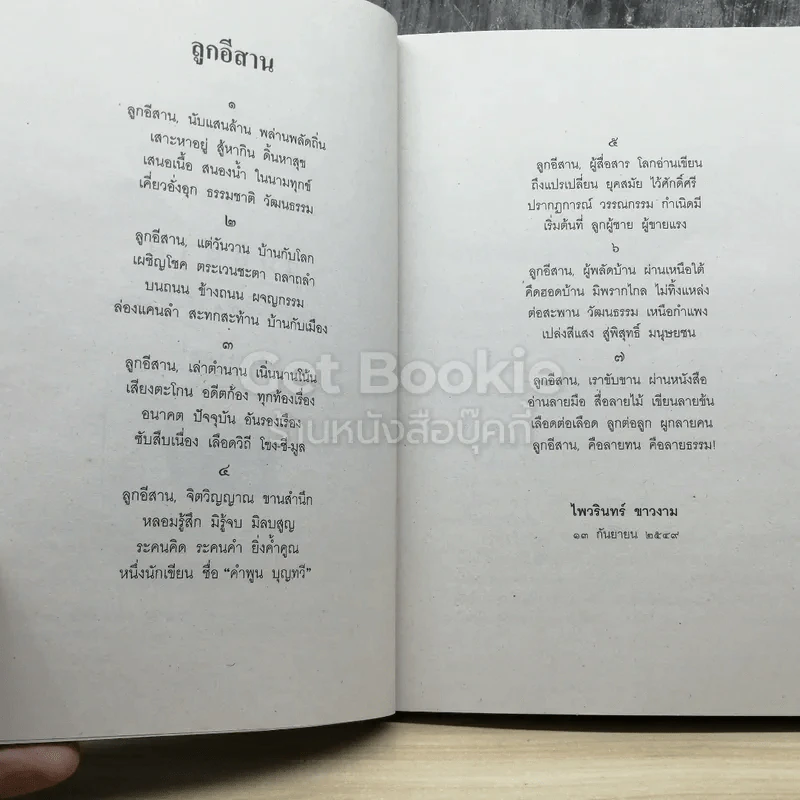 ลูกอีสาน
๑
ลูกอีสาน, นับแสนล้าน พล่านพลัดถิ่น
เสาะหาอยู่ สู้หากิน ดิ้นหาสุข
เสนอเนื้อ สนองน้ำ ในนามทุกข์
เคี่ยวอั่งอุก ธรรมชาติ วัฒนธรรม
๒
ลูกอีสาน, แต่วันวาน บ้านกับโลก
เผชิญโชค ตระเวนชะตา ถลาถลำ
บนถนน ข้างถนน ผจญกรรม
ล่องแคนลำ สะทกสะท้าน บ้านกับเมือง
๓
ลูกอีสาน, เล่าตำนาน เนิ่นนานโน้น
เสียงตะโกน อดีตก้อง ทุกท้องเรื่อง
อนาคต ปัจจุบัน อันรองเรื่อง
ซับสืบเนื่อง เลือดวิถี โขง-ชี-มูล
๔
ลูกอีสาน, จิตวิญญาณ ขานสำนึก
หลอมรู้สึก มิรู้จบ มิลบสูญ
ระคนคิด ระคนคำ ยิ่งค้ำคูณ
หนึ่งนักเขียน ชื่อ “คำพูน บุญทวี”
๕
ลูกอีสาน, ผู้สื่อสาร โลกอ่านเขียน
ถึงแปรเปลี่ยน ยุคสมัย ไว้ศักดิ์ศรี
ปรากฏการณ์ วรรณกรรม กำเนิดมี
เริ่มต้นที่ ลูกผู้ชาย ผู้ขายแรง
๖
ลูกอีสาน, ผู้พลัดบ้าน ผ่านเหนือใต้
คึดฮอดบ้าน มิพรากไกล ไม่ทิ้งแหล่ง
ต่อสะพาน วัฒนธรรม เหนือกำแพง
เปล่งสีแสง สู่พิสุทธิ์ มนุษยชน
๗
ลูกอีสาน, เราขับขาน ผ่านหนังสือ
อ่านลายมือ สื่อลายไม้ เขียนลายข้น
เลือดต่อเลือด ลูกต่อลูก ผูกลายคน
ลูกอีสาน, คือลายทน คือลายธรรม!
ไพวรินทร์ ขาวงาม
๑๓ กันยายน ๒๕๔๙
Get Bookie
ร้านหนังสือบุ๊คกี้